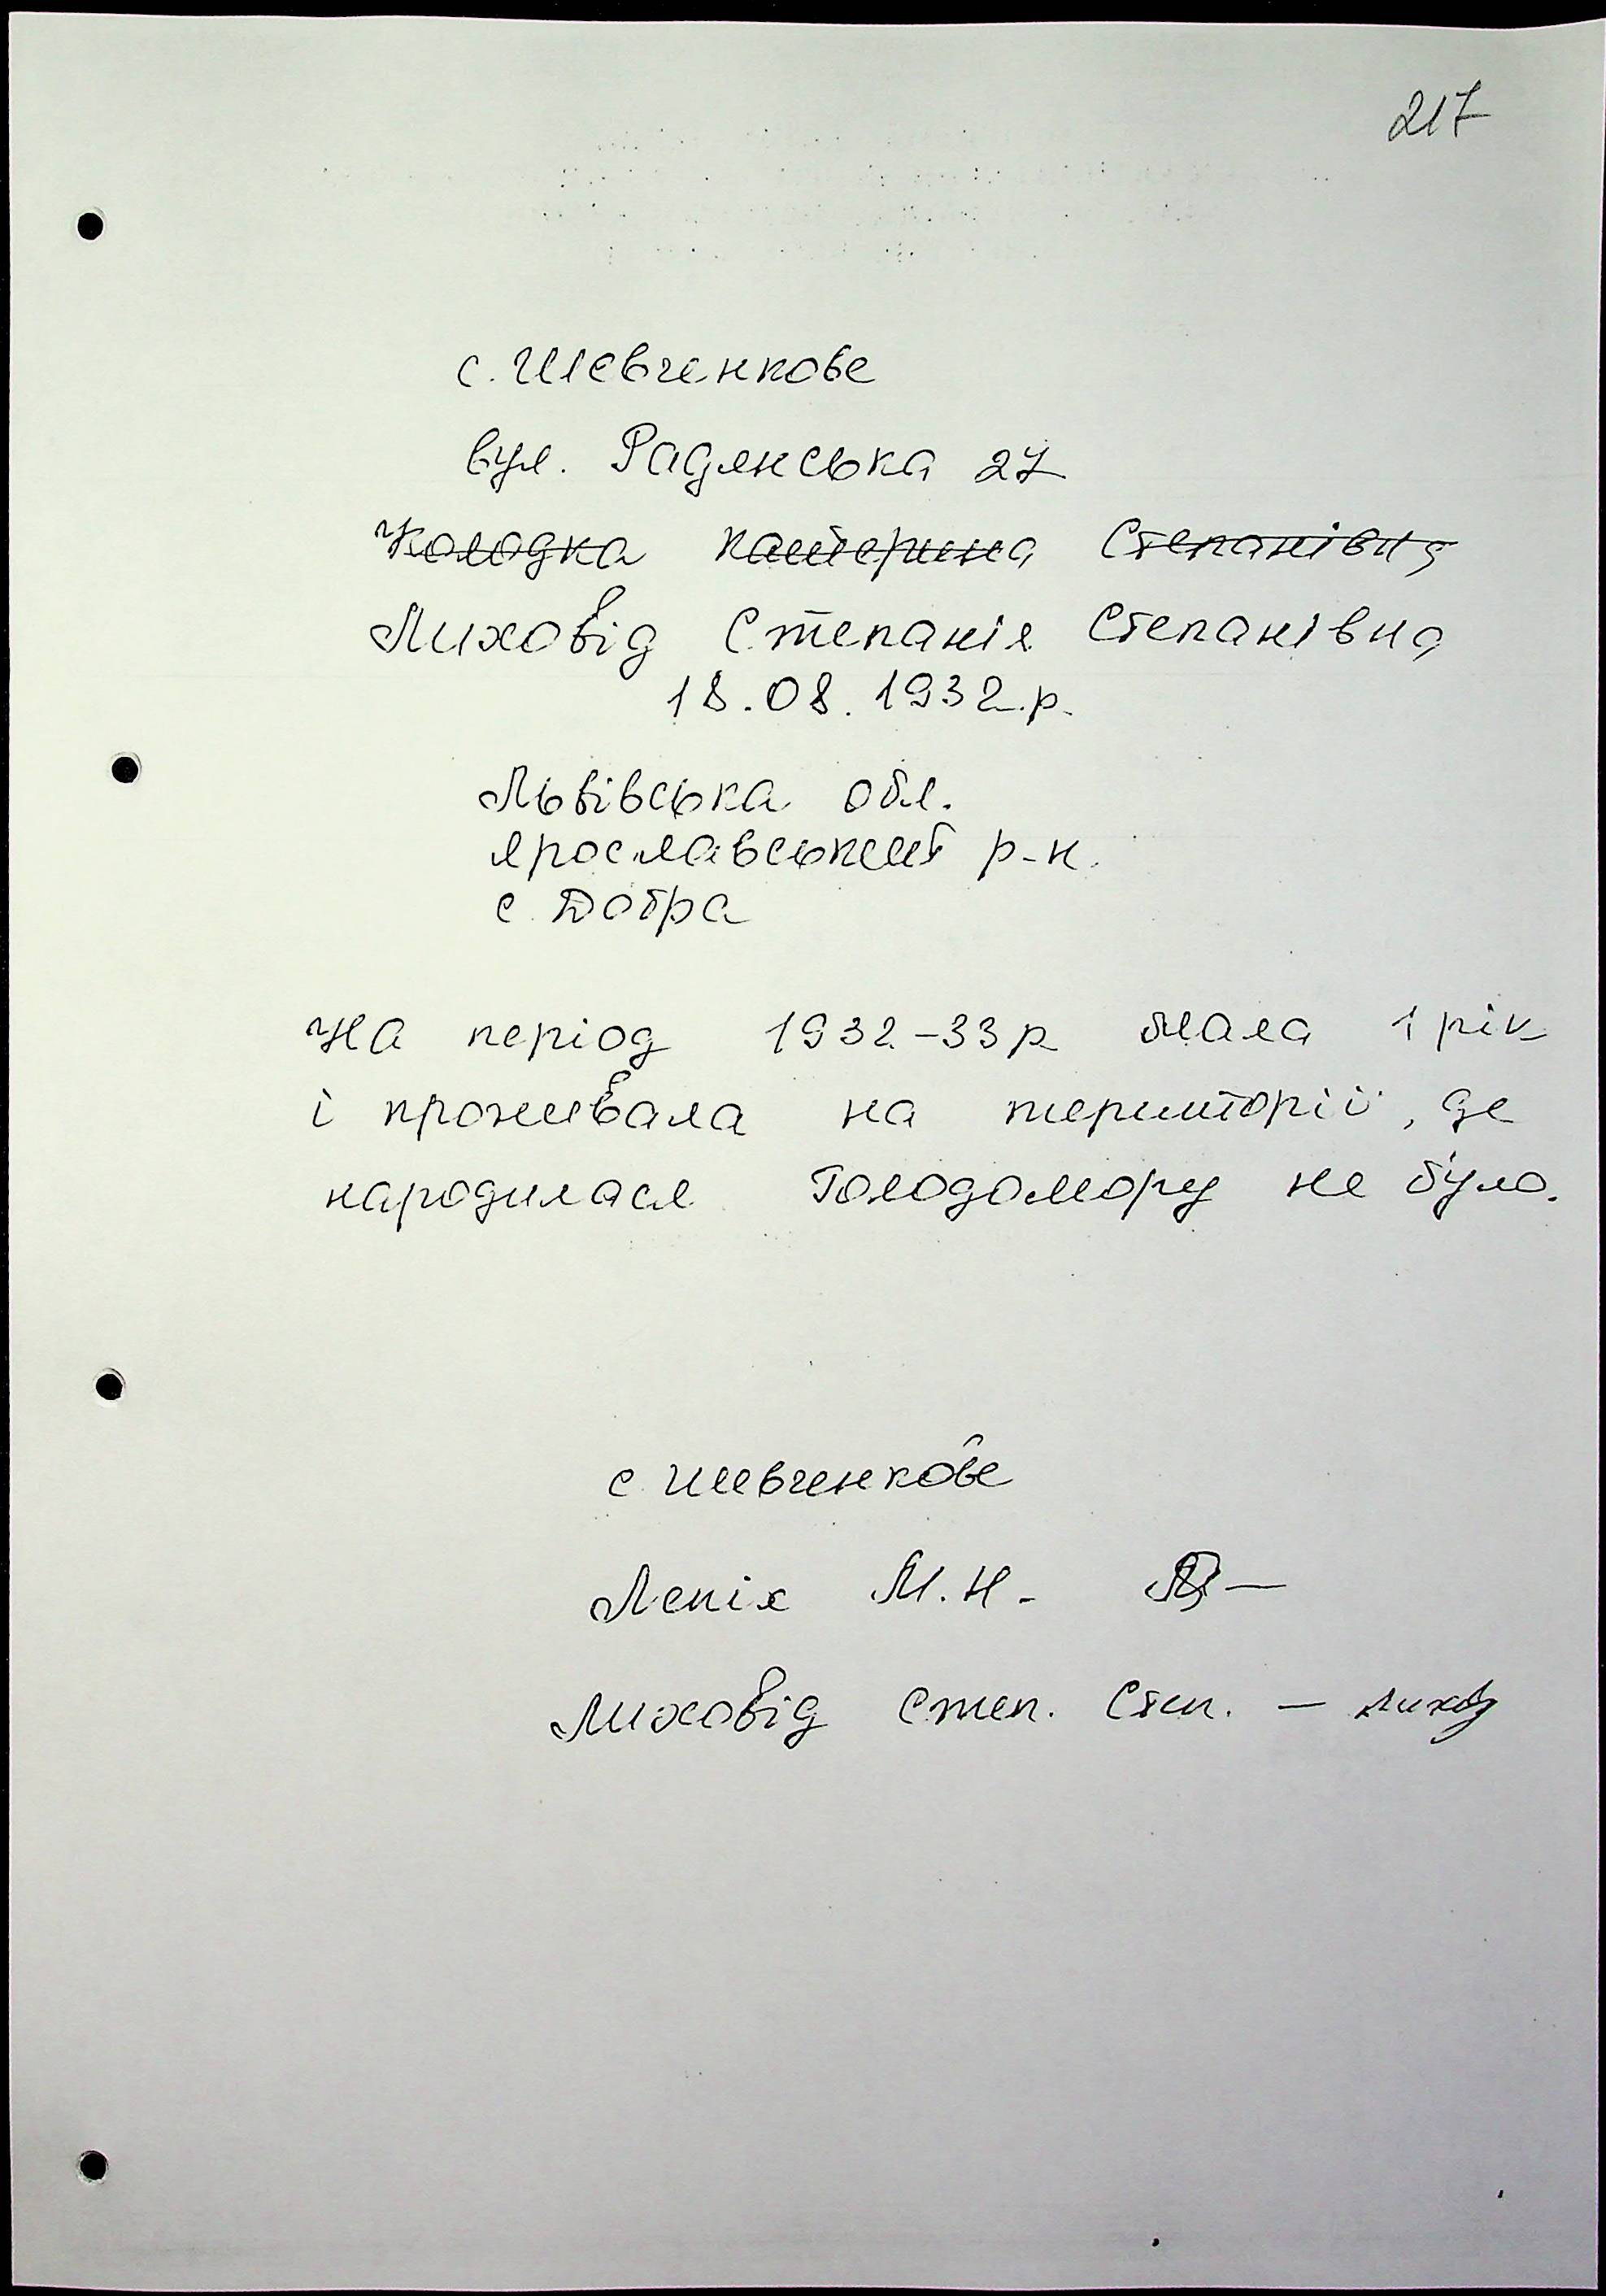 217
с. Шевченкове
вул. Радянська 27
Колодка Катерина Степанівна
Лиховід Степанія Степанівна
18.08.1932.р.
Львівська обл.
Ярославський р-н.
с. Добра
На період 1932-33р мала 1 рік
і проживала на території, де
народилася Голодомору не було.
с. Шевченкове
Лепіх М.Н.
Лиховід Степ. Степ. –